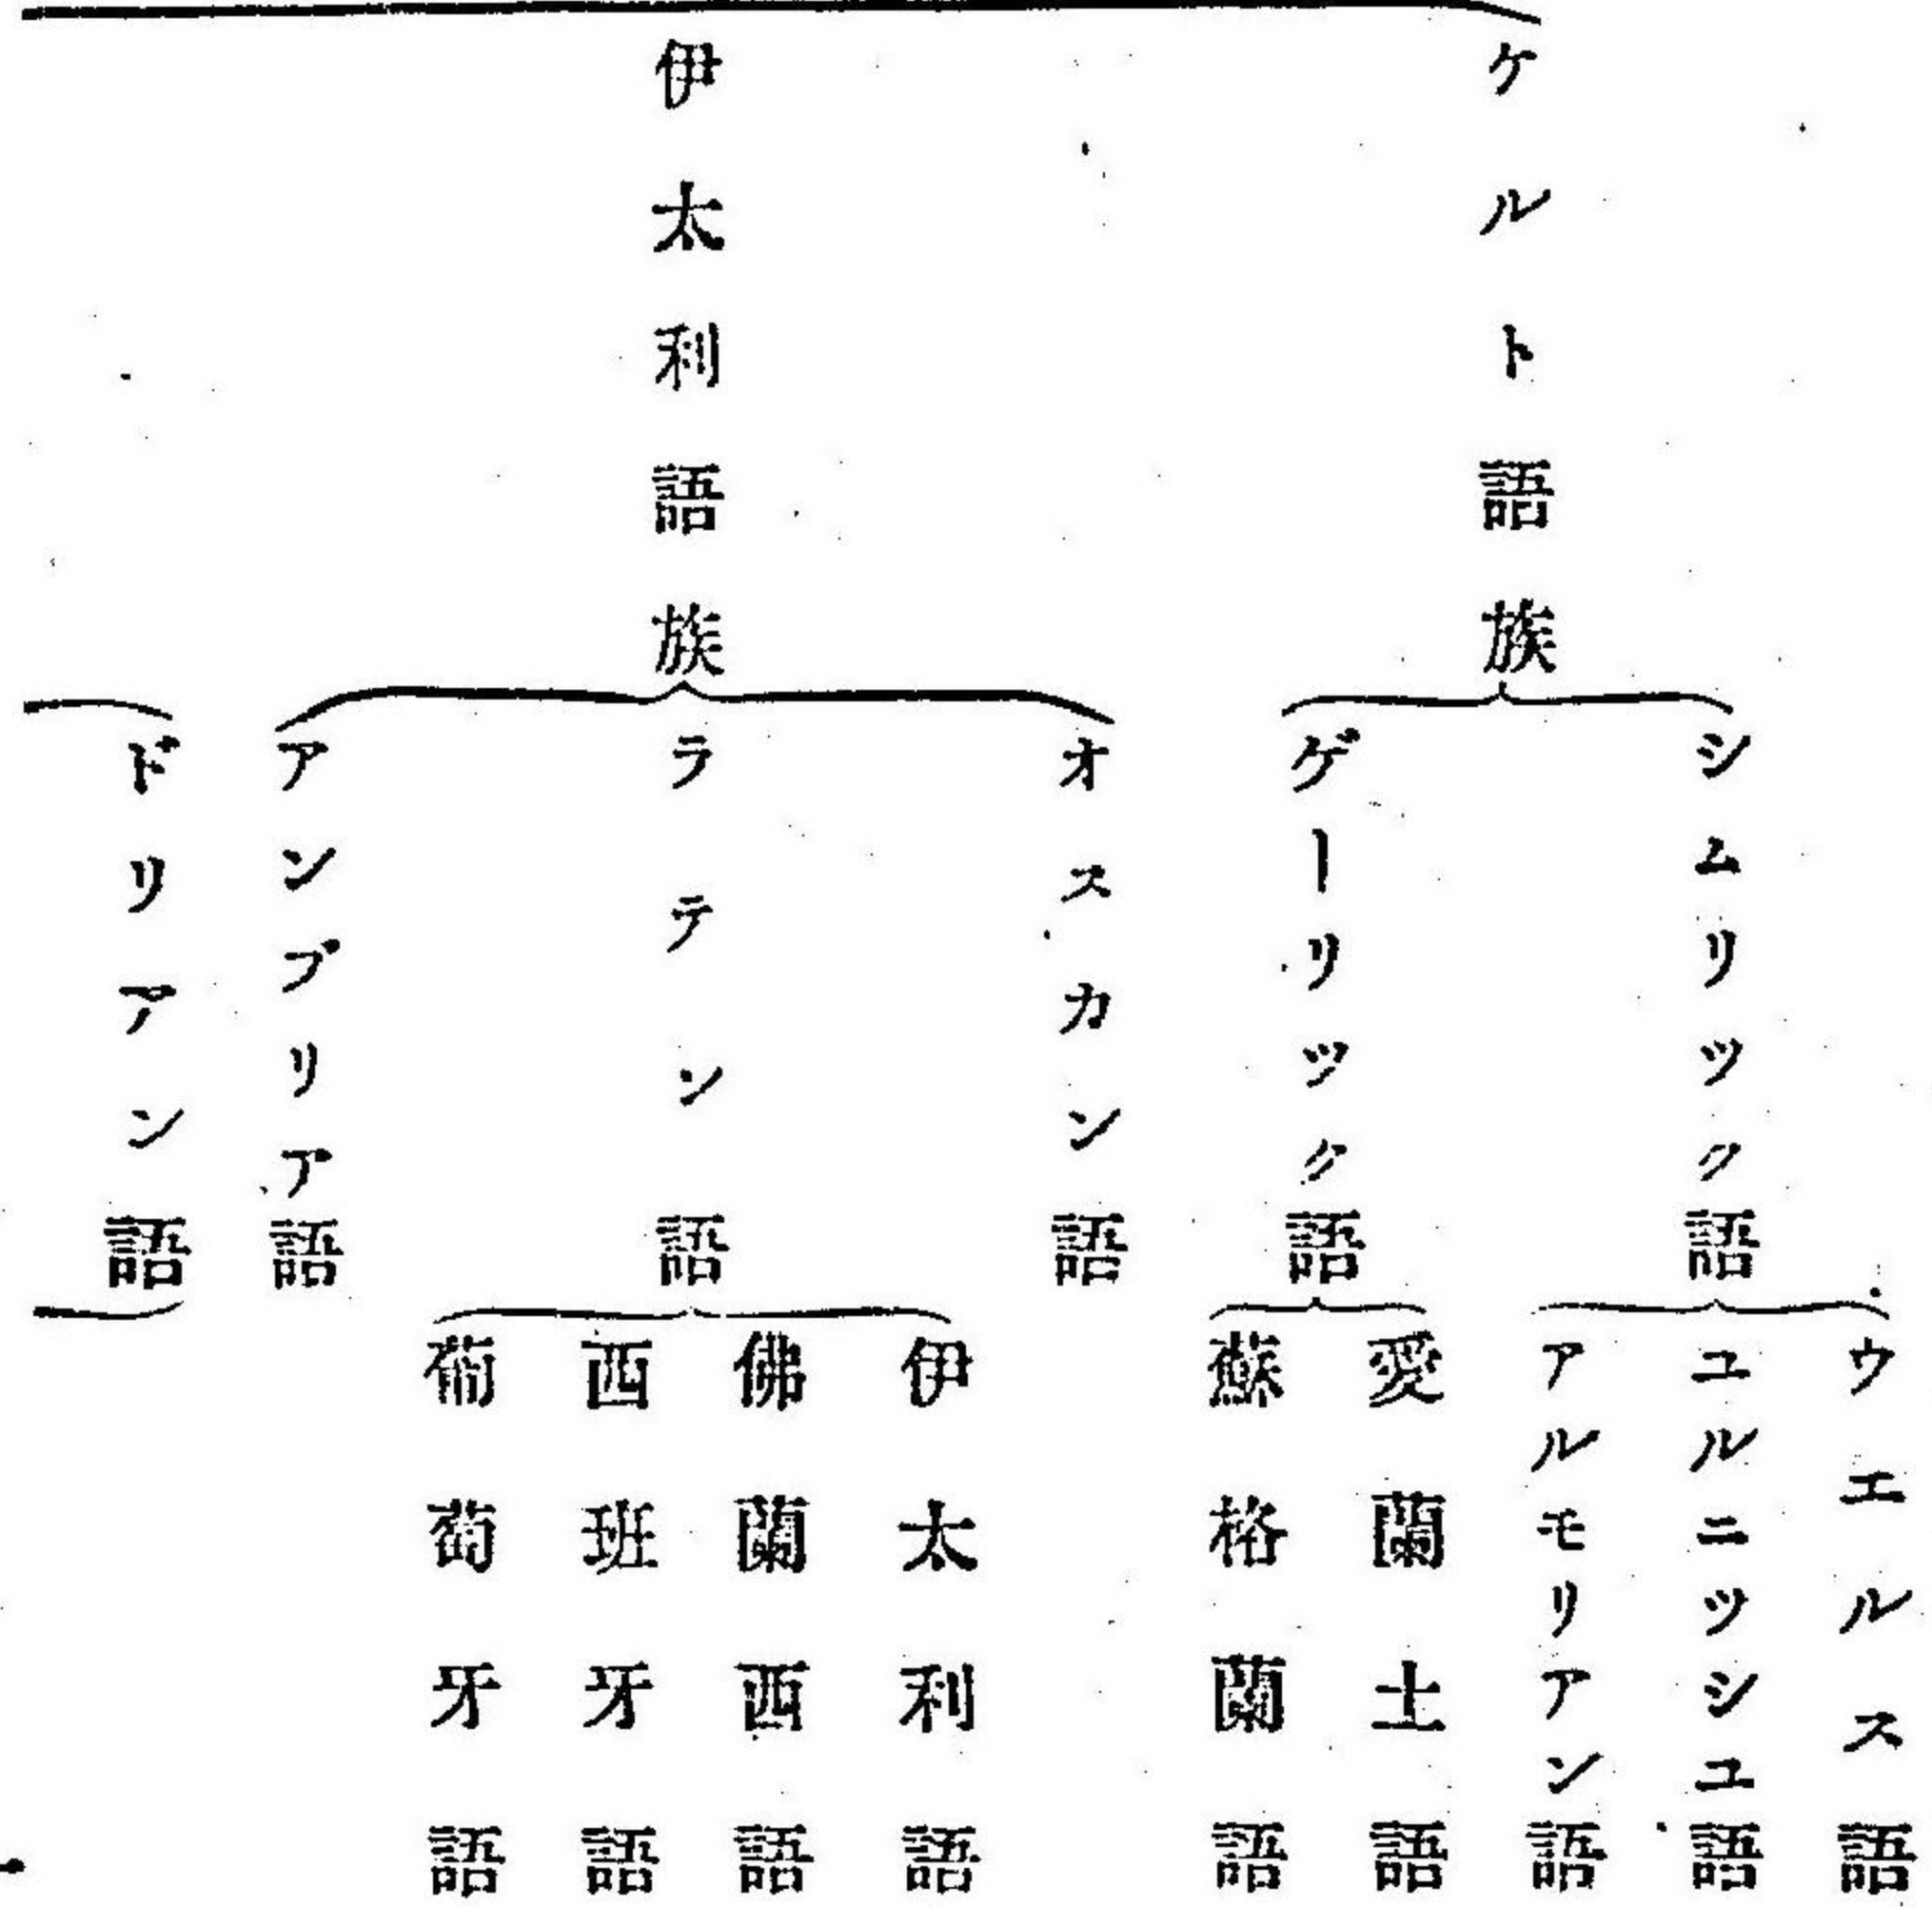 ケルト語族
シムリツク語
ウエルス語
ユルニツシユ語
アルモリアン語
ゲーリツク語
愛蘭土語
蘇格蘭語
伊太利語族
オスカン語
ラテン語
伊太利語
佛蘭西語
西班牙語
葡萄牙語
アンブリア語
ドリアン語